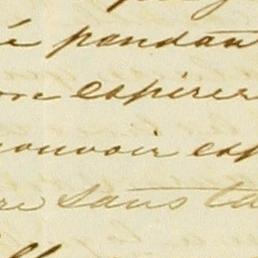 é pendan
espérer
pouvoir esp
re sans ta